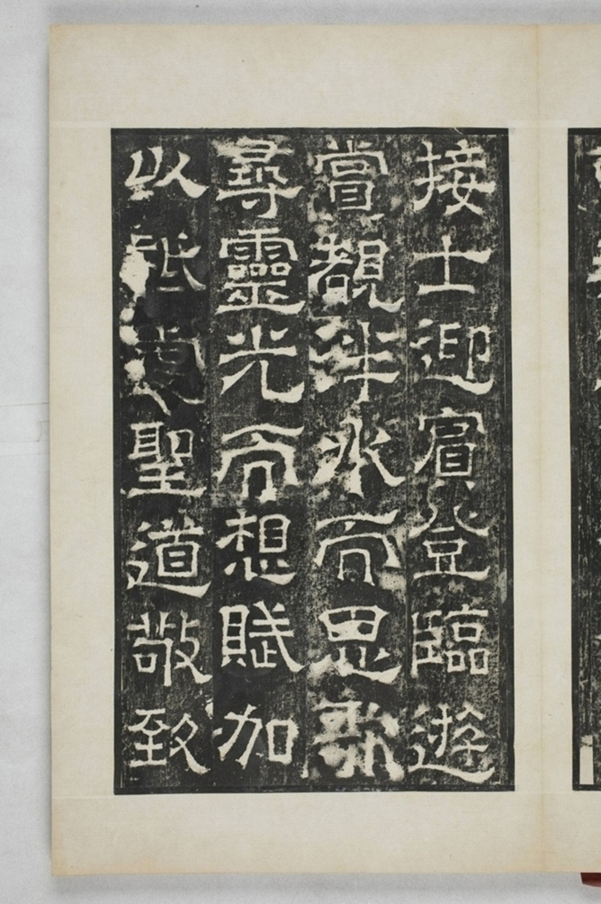 接士迎賓登臨遊
嘗觀泮水而思歌
尋靈光而想賦加
以祗聖道敬致